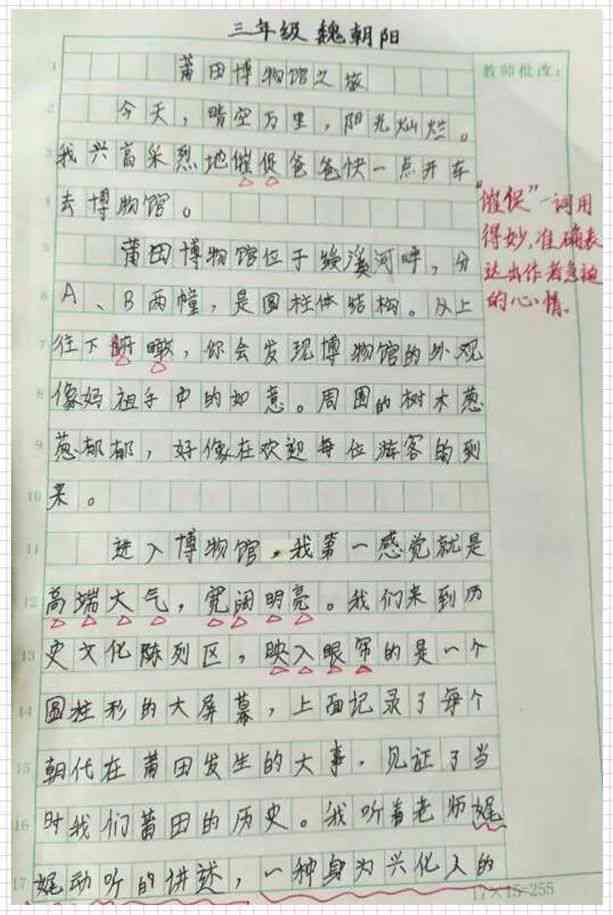 三年级 魏朝阳
莆田博物馆之旅
教师批改：
今天，晴空万里，阳光灿烂。
我兴高采烈地催促爸爸快一点开车
去博物馆。
"催促"一词用
得妙，准确表
达出作者急迫
的心情。
莆田博物馆位于绶溪河畔，分
A、B两幢，是圆柱体结构。从上
往下俯瞰，你会发现博物馆的外观
像妈祖手中的如意。周围的树木葱
葱郁郁，好像在欢迎每位游客的到
来。
进入博物馆，我第一感觉就是
高端大气，宽阔明亮。我们来到历
史文化陈列区，映入眼帘的是一个
圆柱形的大屏幕，上面记录了每个
朝代在莆田发生的大事，见证了当
时我们莆田的历史。我听着老师娓
娓动听的讲述，一种身为兴化人的
1
3
4
6
7
8
9
10
11
12
13
14
15
16
17
17×15=255